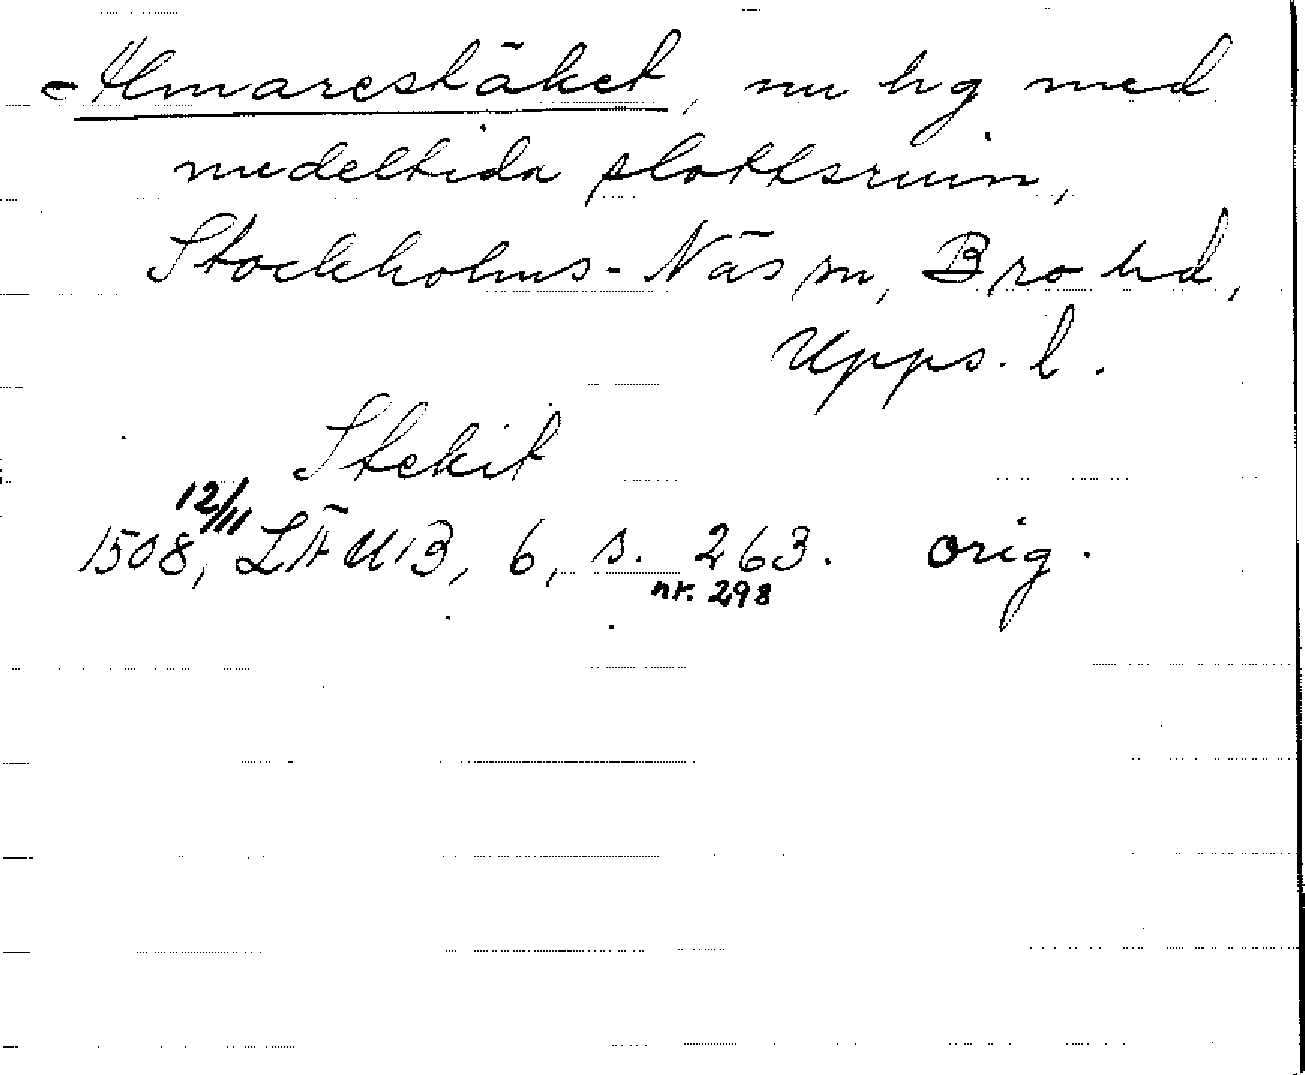 Almarestäket, nu hg med
medeltida slottsruin,
Stockholms-Näs sn, Bro hd,
Upps. l.
Stekit
12/11
1508, LÄUB, 6, s. 263. orig.
nr. 298